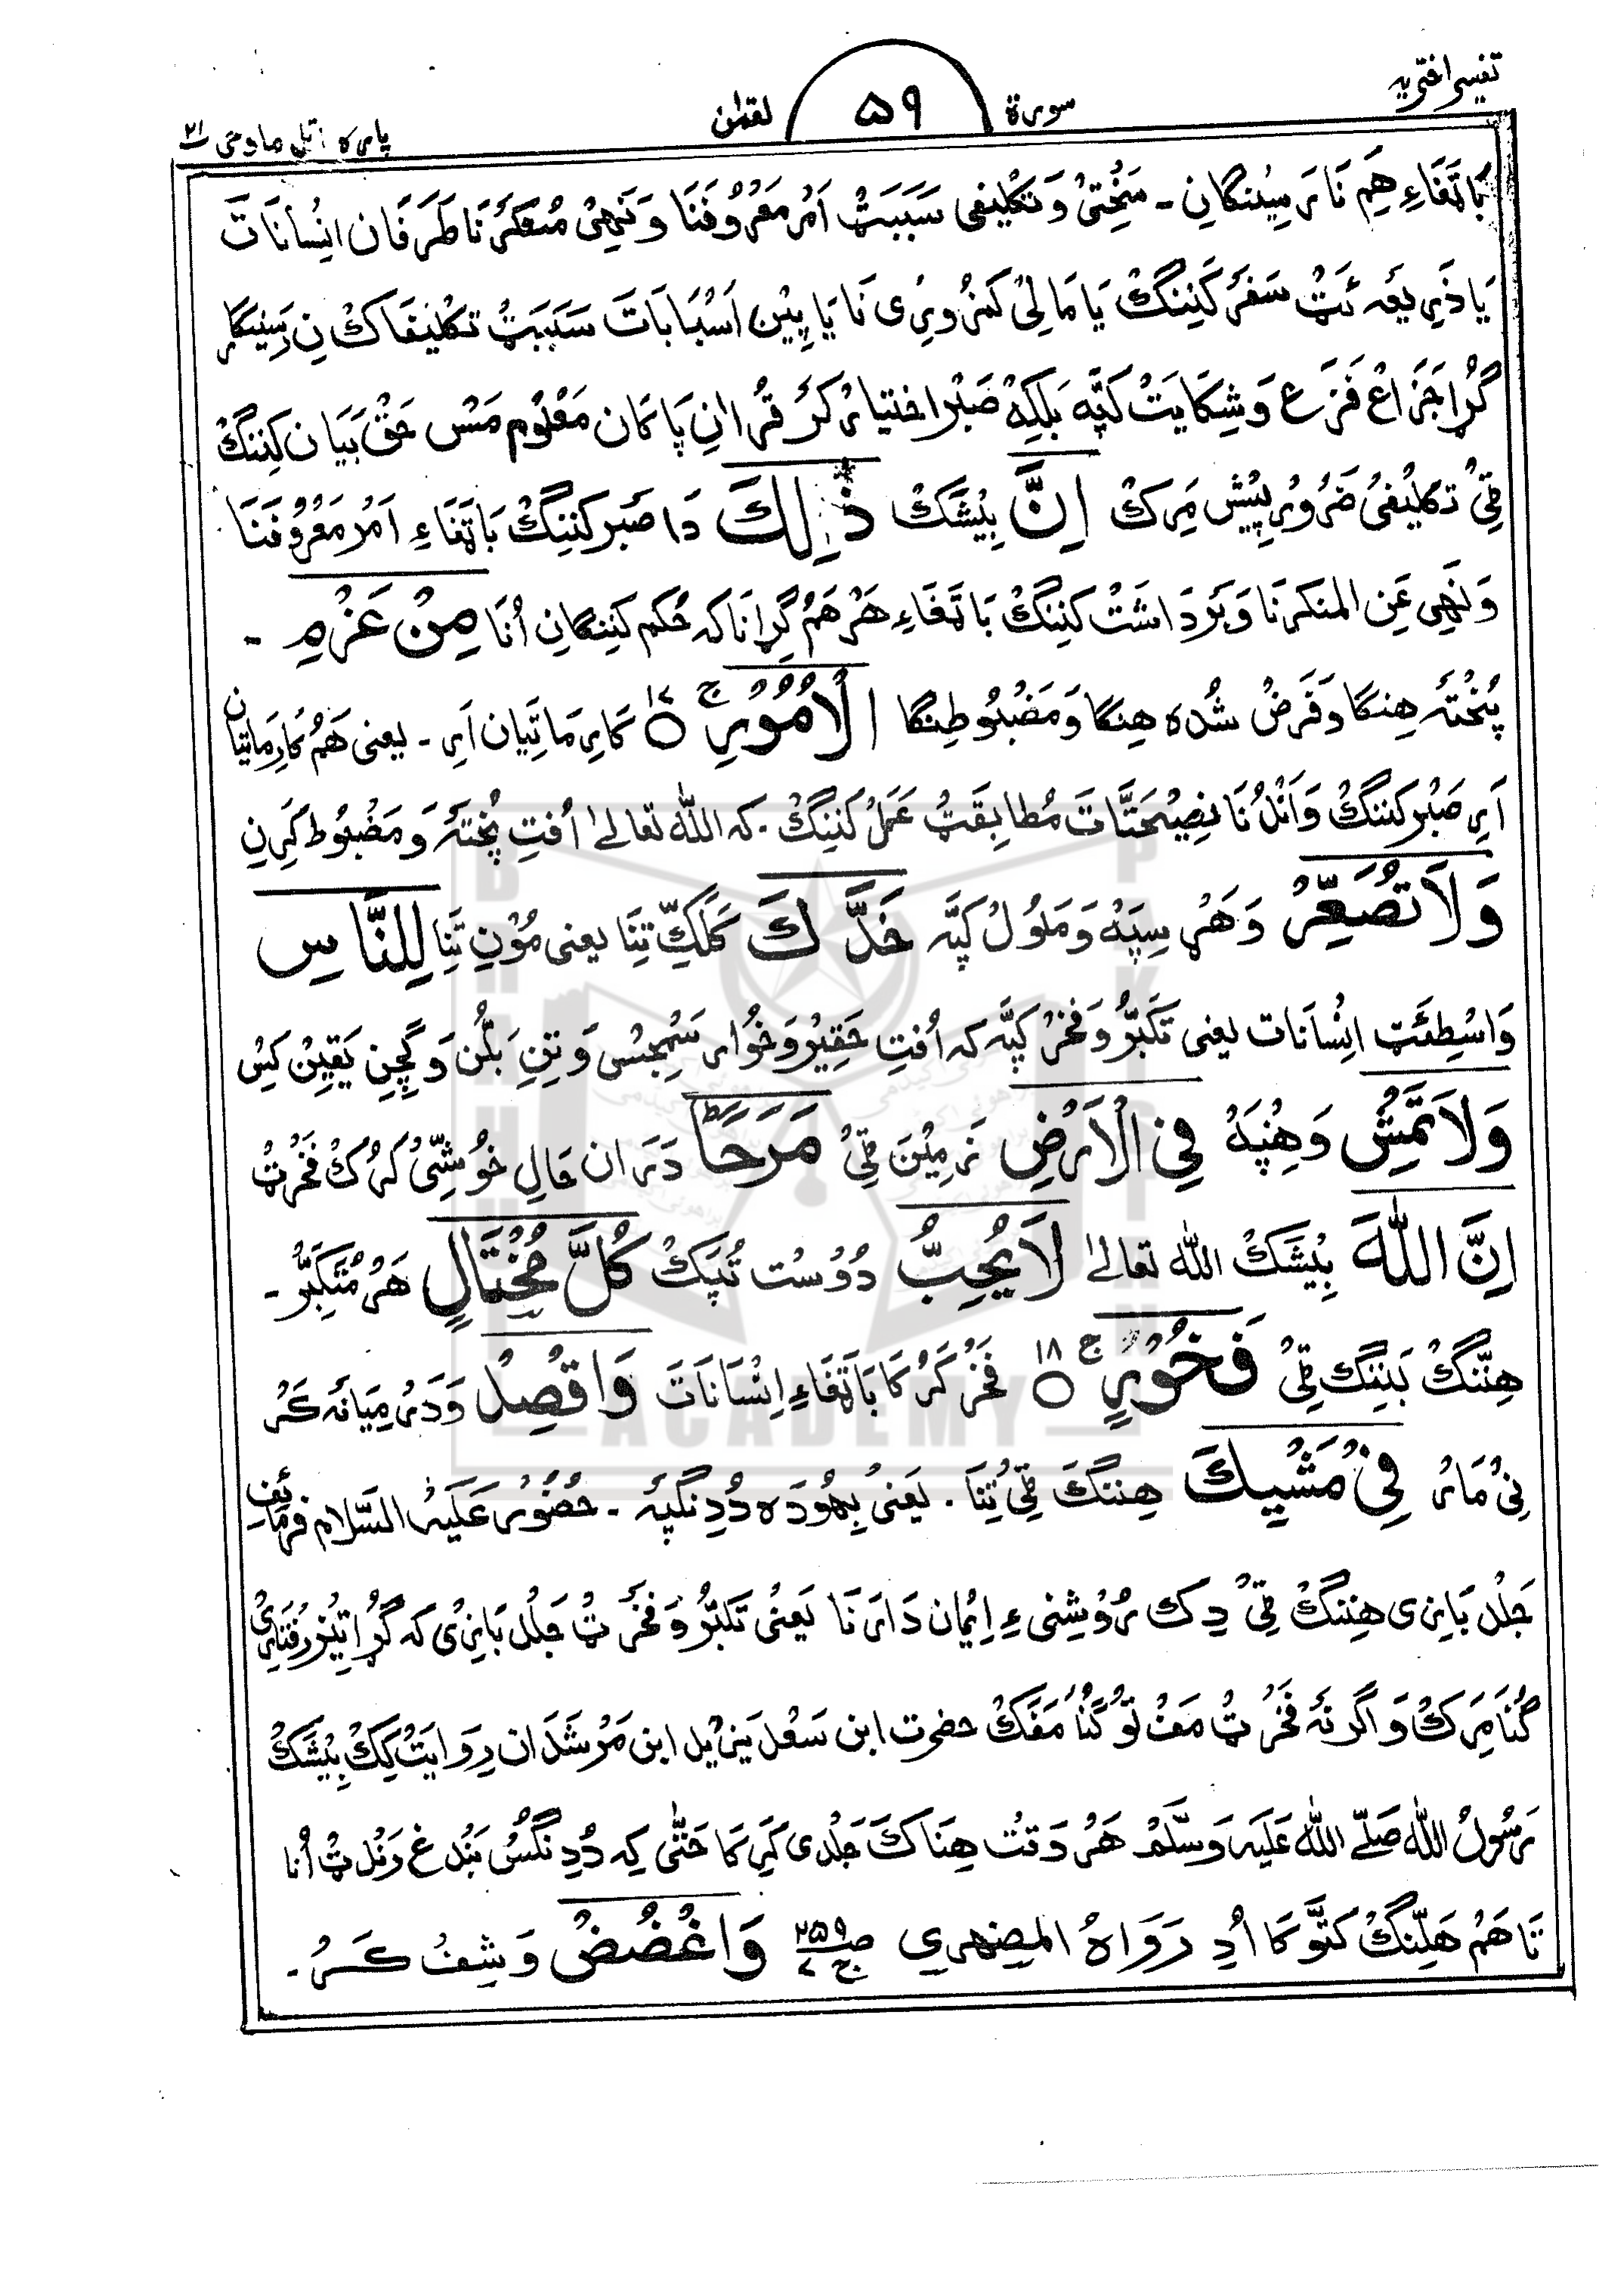 تفسیر اختریہ
سورة ۵۹ لقمٰن
پارہ اتل ماوحی ۲۱
بَاتَغَاءِ هِم نَا رَسِیْنگانِ ۔ سَخْتِیْ وَتَکْلِیفِی سَبَبَٹْ اَمْر مَعْرُوْفَنَا وَنَهِیْ مُنکَرْ نَا طَرَفَان اِنْسَانَاتَ
یَا ذَرِیعَہ ئَٹْ سَفَرْ کَنِنگْ یَا مَالِیْ کَمْزُوْرِی نَا یَا پِیْن اَسْبَابَاتَ سَبَبَٹْ تَکْلِیْفَاکْ نِ رَسِیْنگَار
گُڑَا جَزَاعْ فَزَع وَشِکَایَتْ کَپَّہ بَلْکِہ صَبْر اختیار کَرْ قُرْاٰنِ پَاکَان مَعْلُوْم مَسْ حَقْ بَیَان کَنِنگْ
ٹِیْ تَکْلِیْفِیْ ضَرُوْر پِیْش مَرِکْ اِنَّ بِیْشَکْ ذٰلِكَ دَا صَبَر کَنِنگْ بَاتَغَاءِ اَمْر مَعْرُوْفَنَا
وَنَهِی عَنِ المنکر نَا وَبَرْدَاشَتْ کَنِنگْ بَاتَغَاءِ هَرْ هَمْ گِرَانَا کہ حُکم کَنِنگانِ اُنَا مِنْ عَزْمِ ۔
پُخْتَہ هِنگَا وَفَرَضْ شُدَہ هِنگا وَمَضْبُوْطِنگا الْاُمُوْرِ ج ۱۷ کَارِمَاتِیَان اَرِ ۔ یعنی هَمْ کَارِمَاتِیَان
اَرِ صَبْر کَنِنگْ وَاَنْلُ نَا نَصِیْحَتَاتَ مُطَابِقَٹْ عَمَلْ کَنِنگْ ۔ کہ اللّٰہ تعالےٰ اُفتِ پُخْتَہ وَمَضْبُوْط کَرِنِ
وَلَا تُصَعِّرْ وَهَرْ سِپَہْ وَمَلُوْلْ کَپَّہ خَدَّكَ کَلَّکِّ تِنَا یعنی مُوْنِ تِنَا لِلنَّاسِ
وَاسْطِئَٹ اِنْسَانَات یعنی تَکَبُّرْ وَفَخْرْ کَپَّہ کہ اُفتِ حَقِیْر وَخُوَار سَمْجِسْ وَتِنِ بَلُّن وَگِچِّنِ یَقِیْن کِسْ
وَلَا تَمْشِ وَهِنْپَہْ فِی الْاَرْضِ زَمِیْنَ ٹِیْ مَرَحًا ط دَرَان حَالِ خُوْشِیْ کَرُکْ فَخْرَٹْ
اِنَّ اللّٰهَ بِیْشَکْ اللّٰہ تعالےٰ لَا یُحِبُّ دُوْسْت تُپَکْ کُلَّ مُخْتَالٍ هَرْ مُتَکَبِّرْ ۔
هِنِّنگْ بَنِنگ ٹِیْ فَخُوْرٍ ج ۱۸ فَخْر کَرُ کَا بَاتَغَاءِ اِنْسَانَاتَ وَاقْصِدْ وَدَرْمِیَانَہ کَرْ
نِیْ مَارْ فِیْ مَشْیِكَ هِنِنگَ ٹِیْ تِنَا ۔ یَعْنِی بِهُوْدَہ دُدِ نگپَہ ۔ حُضُوْر عَلَیْہِ السَّلَام فرمَائِف
جَلْد بَازِی هِنِنگْ ٹِیْ دِک رُوْشِنِی ءِ اِیْمَان دَارَنَا یَعْنِیْ تَکَبُّرْ وَفَخْرَ ٹْ جَلْد بَازِی کَہ گُڑَا تِیْزْ رَفْتَارِی
گُنَا مَرِکْ وَاَگَرْ نَہ فَخْرَٹْ مَفْ تَوْ گُنَا مَفَکْ حضرت ابن سَعْد یَزِیْد ابن مَرْشَدَان رِوَایَتْ کِکْ بِیْشَکْ
رَسُوْلُ اللّٰہ صَلَّے اللّٰہ عَلَیْہ وَسَلَّمْ هَرْ وَقْت هِنَاکَ جَلْدِی کَرِکَا حَتّٰی کِہ دُدِ نگسْ بَنْدغ رَنْدَٹْ اُنَا
تَا هَمْ هَلِّنگْ کَتَّوْ کَا اُدِ رَوَاہُ المظهری صـ ۲۵۹ ج ۷ وَاغْضُضْ وَشِفْ کَرْ ۔